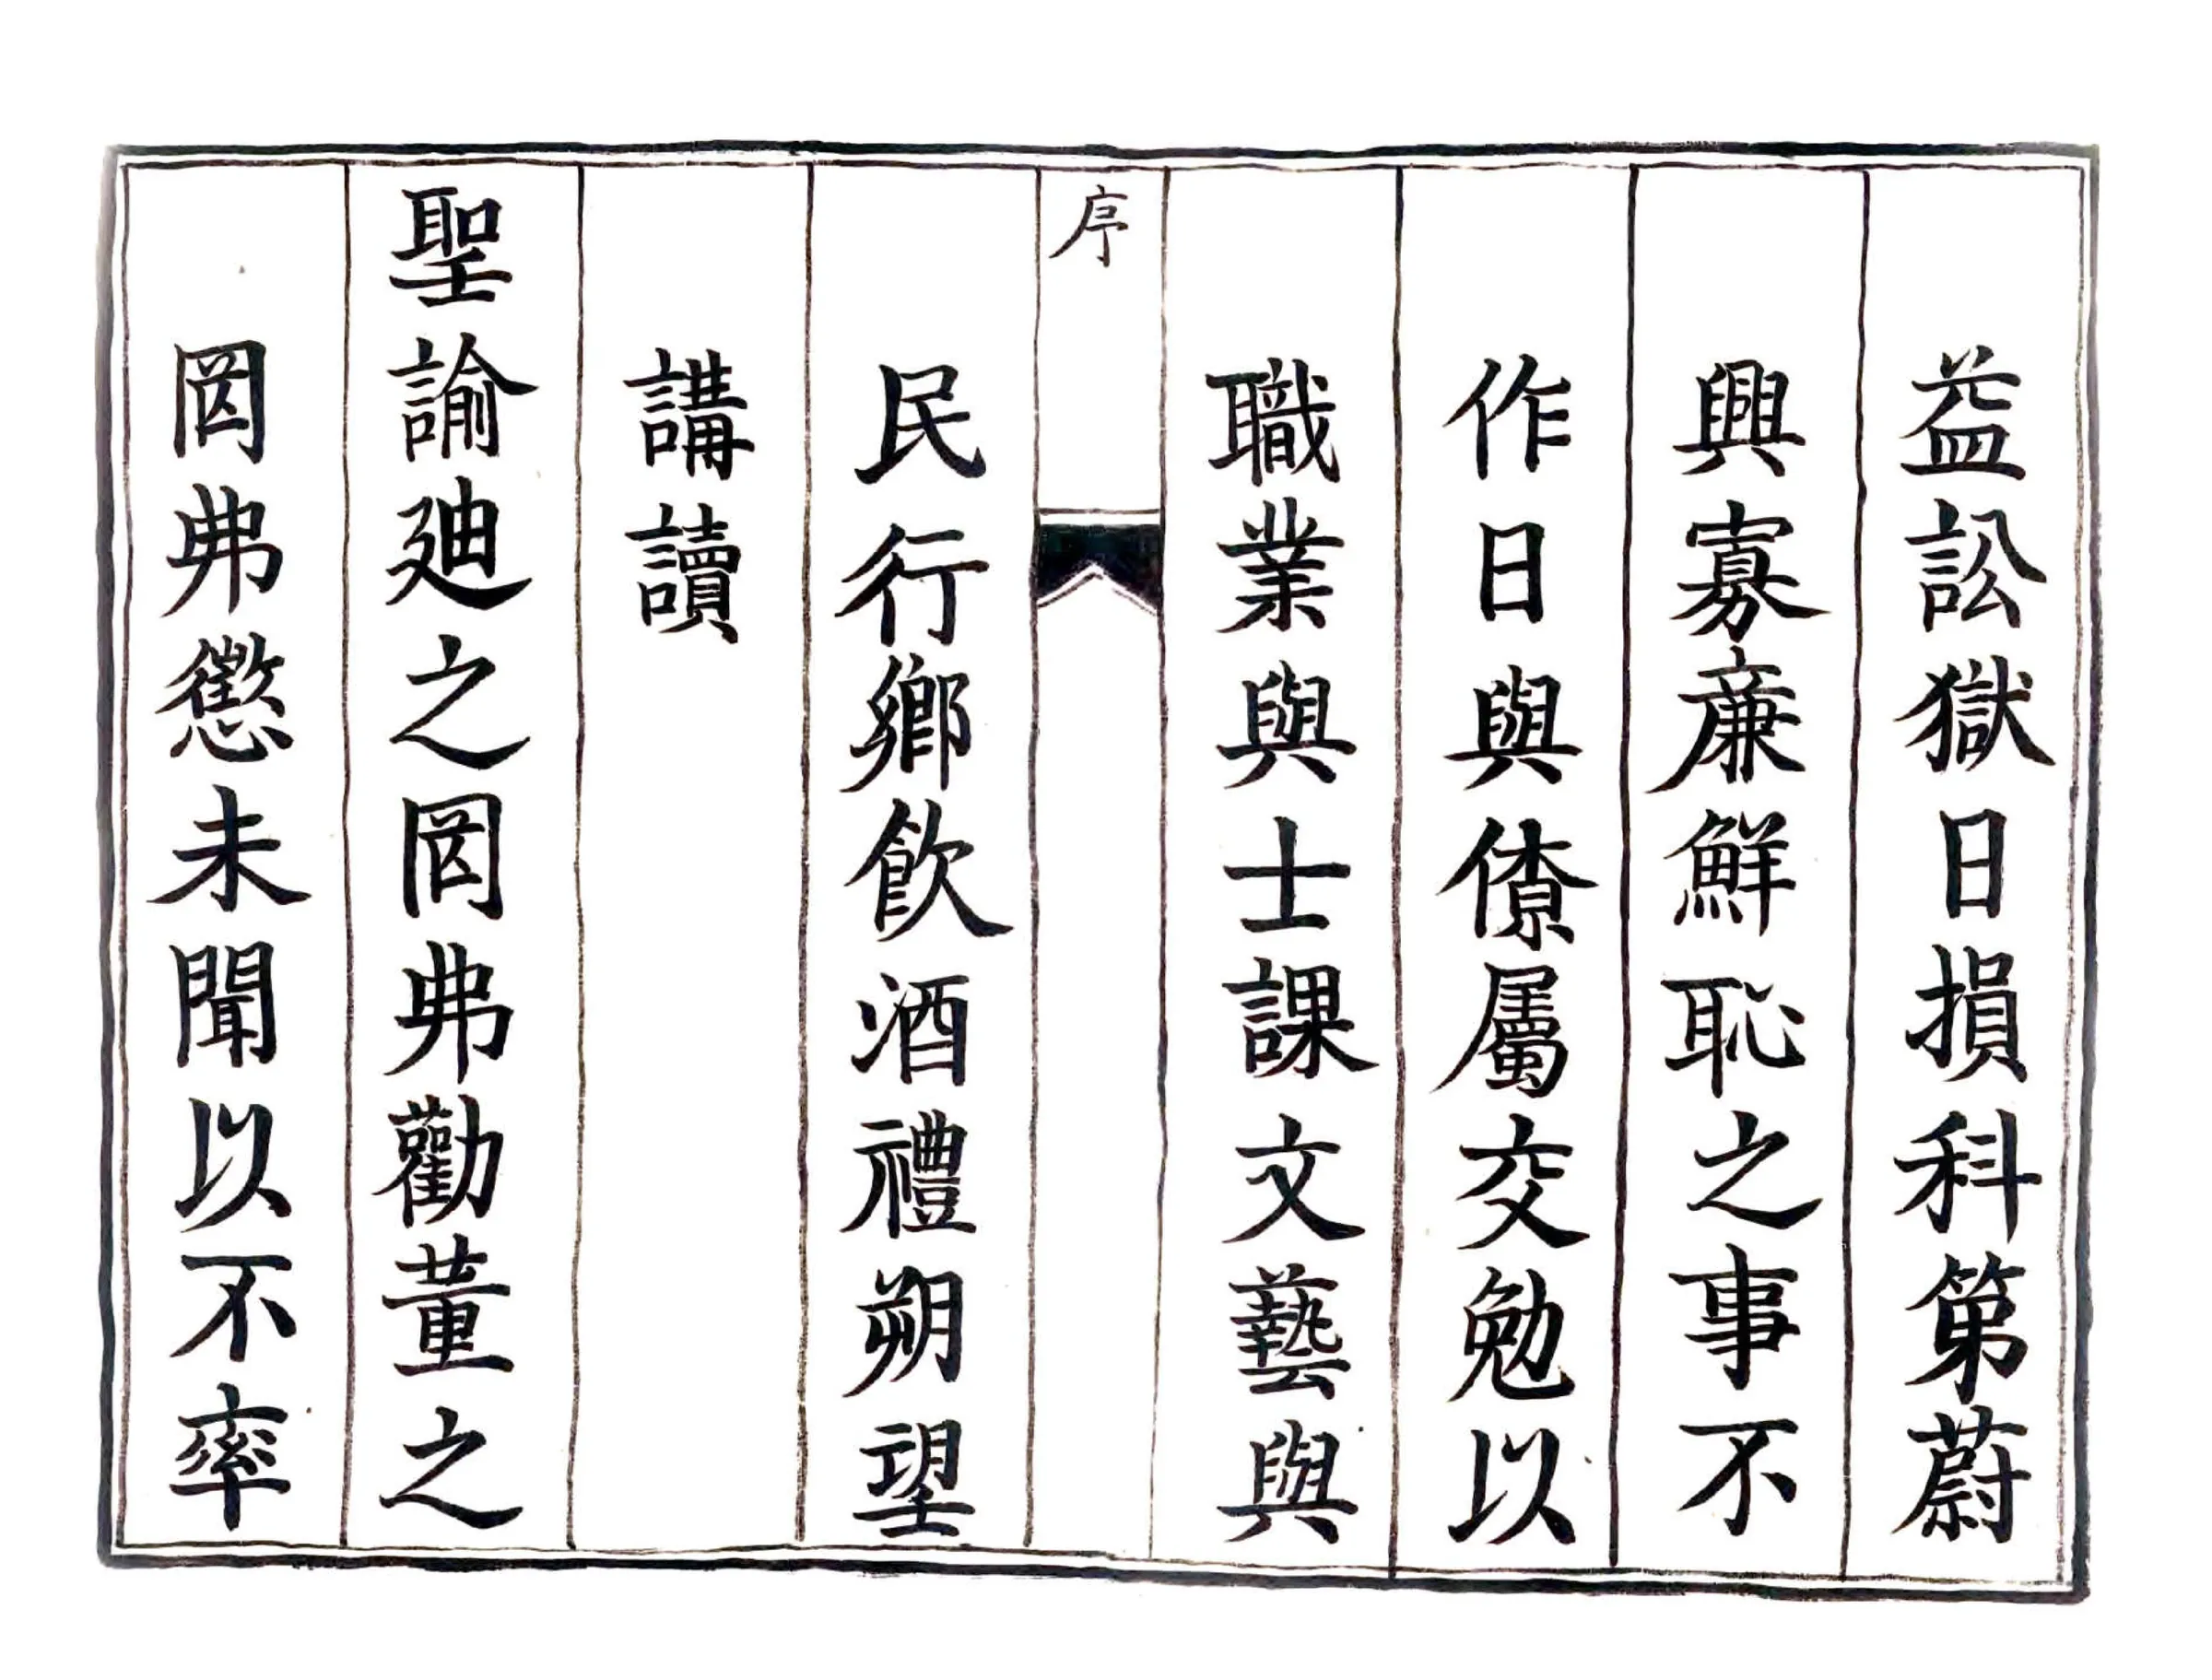 益訟獄日損科第蔚
興寡亷鮮恥之事不
作日與僚屬交勉以
職業與士課文藝與
序
民行鄉飲酒禮朔望
講讀
聖諭廸之罔弗勸董之
罔弗懲未聞以不率